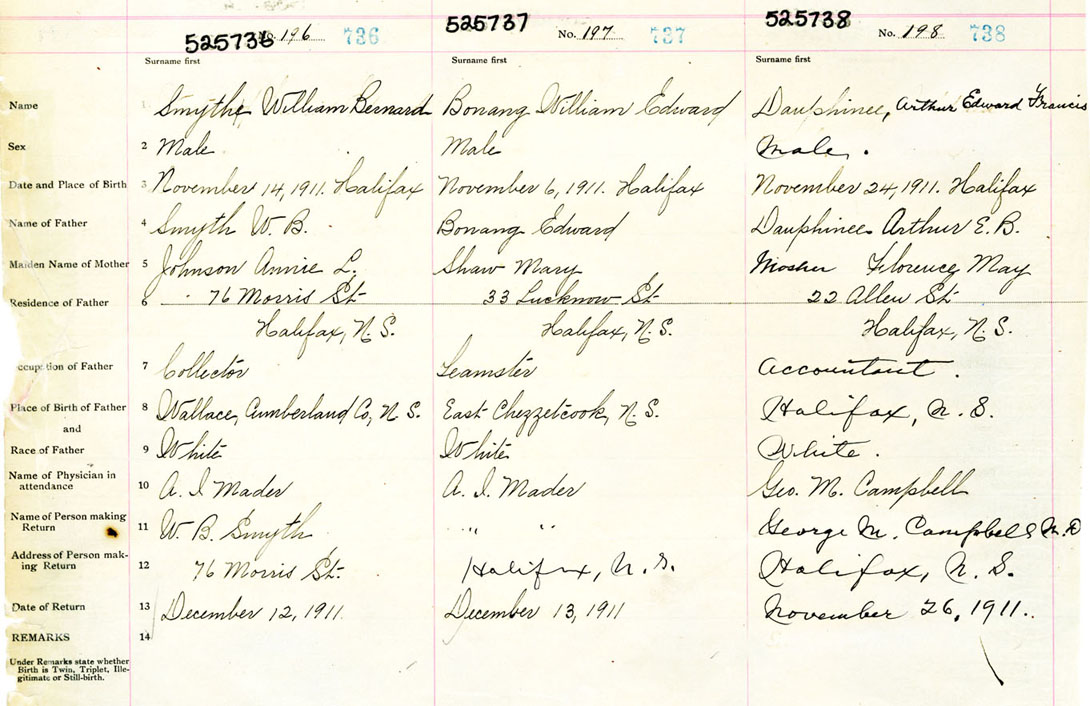 525736 No. 196 736 525737 No. 197 737 525738 No. 198 738
Surname first Surname first Surname first
Name 1 Smythe, William Bernard Bonang William Edward Dauphinee, Arthur Edward Francis
Sex 2 Male Male Male.
Date and Place of Birth 3 November 14, 1911. Halifax November 6, 1911. Halifax November 24, 1911. Halifax
Name of Father 4 Smyth W. B. Bonang Edward Dauphinee Arthur E. B.
Maiden Name of Mother 5 Johnson Annie L. Shaw Mary Mosher Florence May
Residence of Father 6 76 Morris St 33 Lucknow St 22 Allen St
Halifax, N. S. Halifax, N. S. Halifax, N. S.
Occupation of Father 7 Collector Teamster Accountant.
Place of Birth of Father 8 Wallace, Cumberland Co, N. S. East Chezzetcook, N. S. Halifax, N. S.
and
Race of Father 9 White White White.
Name of Physician in
attendance 10 A. I. Mader A. I. Mader Geo. M. Campbell
Name of Person making
Return 11 W. B. Smyth " " George M. Campbell M.D
Address of Person mak-
ing Return 12 76 Morris St. Halifax, N. S. Halifax, N. S.
Date of Return 13 December 12, 1911 December 13, 1911 November 26, 1911.
REMARKS 14
Under Remarks state whether
Birth is Twin, Triplet, Ille-
gitimate or Still-birth.